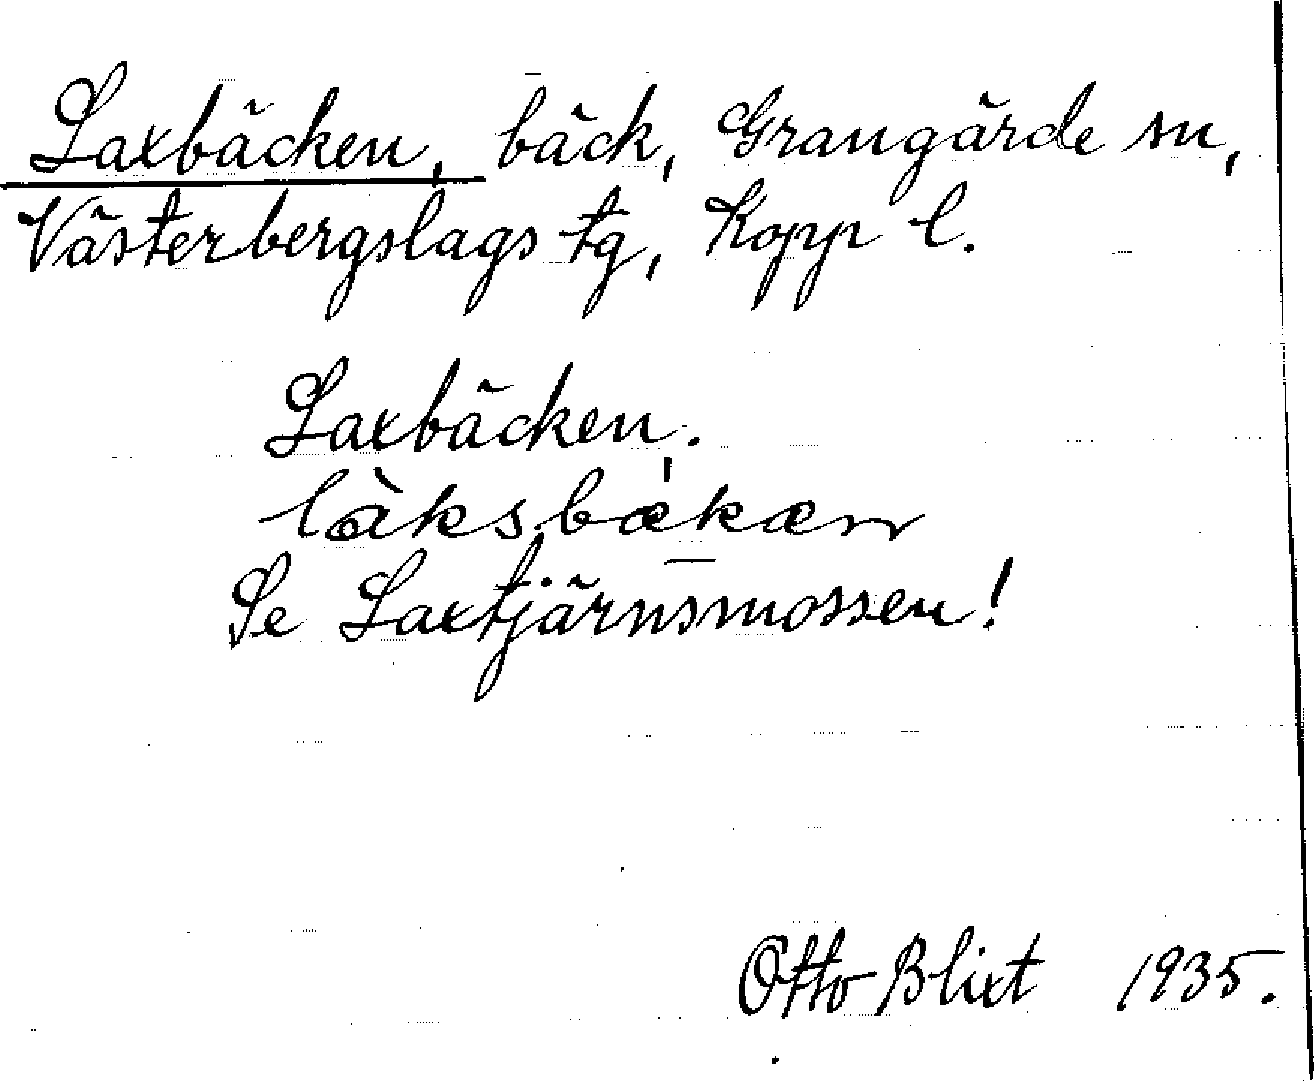 Laxbäcken, bäck, Grangärde sn,
Västerbergslags tg, Kopp l.
Laxbäcken.
làksbækæn
Se Laxtjärnsmossen!
Otto Blixt 1935.